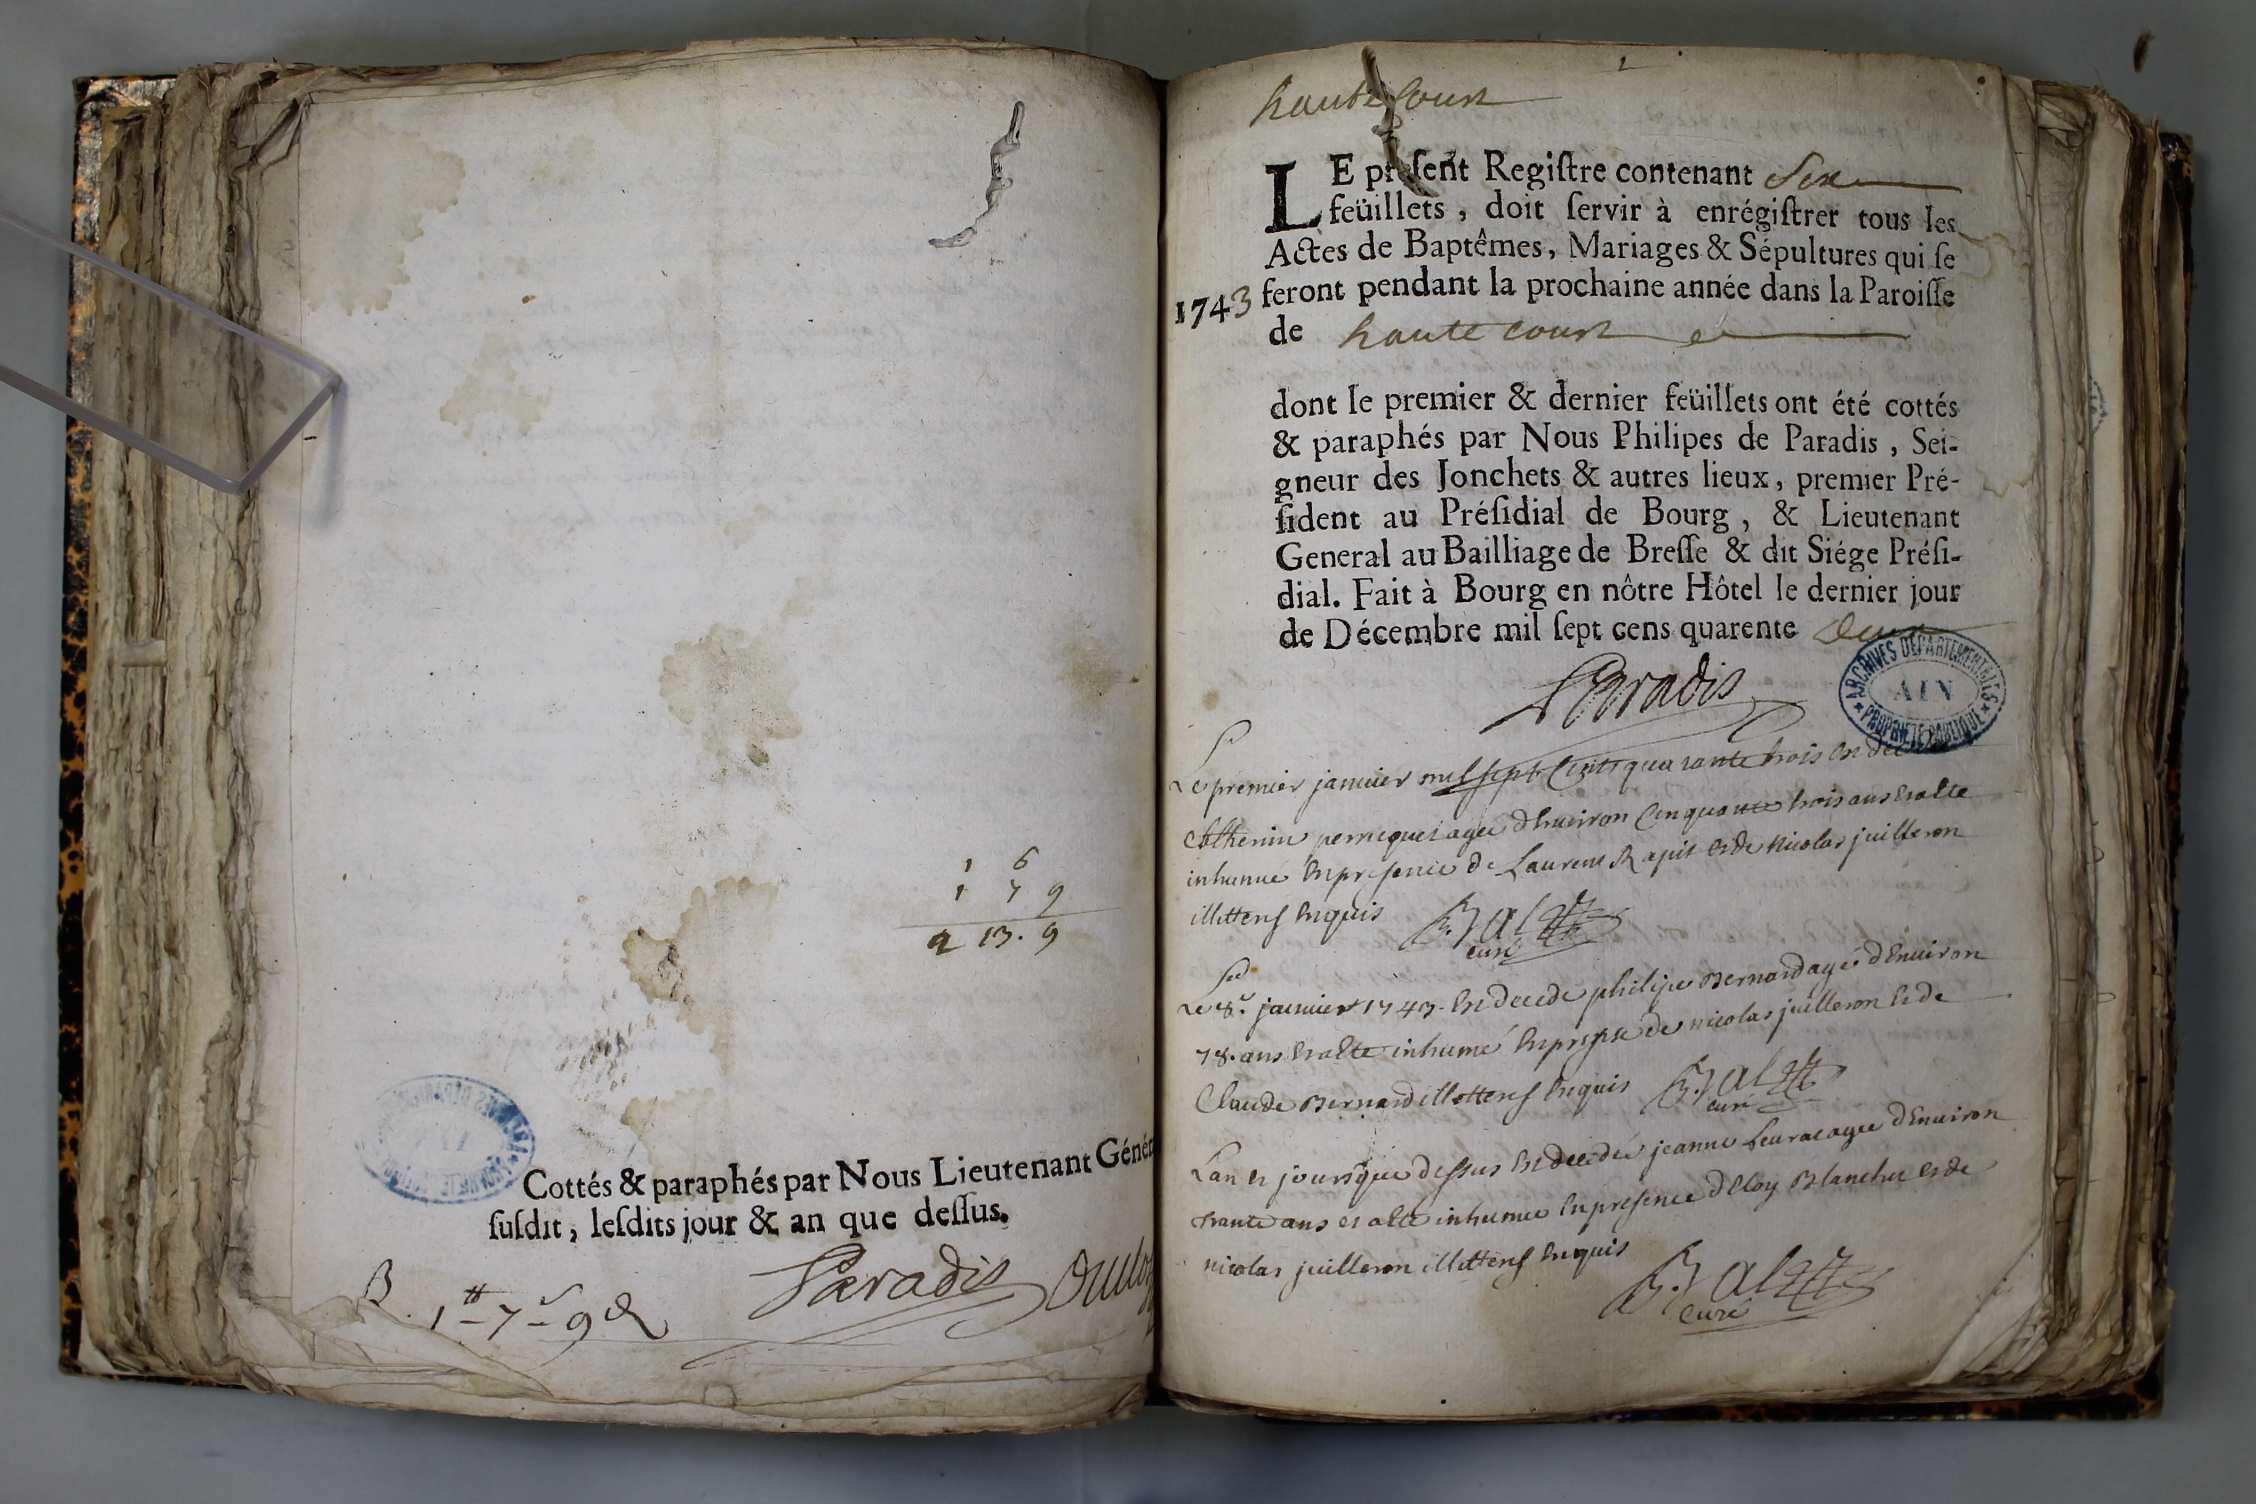 1 6
1 7 9
2 13. 9
Cottés & paraphés par Nous Lieutenant Génér
ſuſdit, leſdits jour & an que deſſus.
Paradis
1 - 7 - 9
haute Court
LE preſent Regiſtre contenant Six
feüillets, doit ſervir à enrégiſtrer tous les
Actes de Baptêmes, Mariages & Sépultures qui ſe
1743 feront pendant la prochaine année dans la Paroiſſe
de haute court
dont le premier & dernier feüillets ont été cottés
& paraphés par Nous Philipes de Paradis, Sei-
gneur des Jonchets & autres lieux, premier Pré-
ſident au Préſidial de Bourg, & Lieutenant
General au Bailliage de Breſſe & dit Siége Préſi-
dial. Fait à Bourg en nôtre Hôtel le dernier jour
de Décembre mil ſept cens quarente deux
Paradis
ARCHIVES DEPARTEMENTALES
AIN
PROPRIETE PUBLIQUE
Le premier janvier mil sept Cents quarante trois Est
agée d'Environ Cinquante trois ans Et a Ete
inhumé En presence de Laurent Et de nicolas juilleron
illitterés Enquis
curé
Le 8e. janvier 1743. Est decede philipe Bernard agé d'Environ
78. ans Et a Ete inhumé En de nicolas juilleron Et de
Claude Bernard illitterés Enquis
curé
Lan Et jour que dessus Est decedée jeanne agee d'Environ
trante ans et a Ete inhumee En presence d'Eloy Blanchet et de
nicolas juilleron illitterés Enquis
Curé